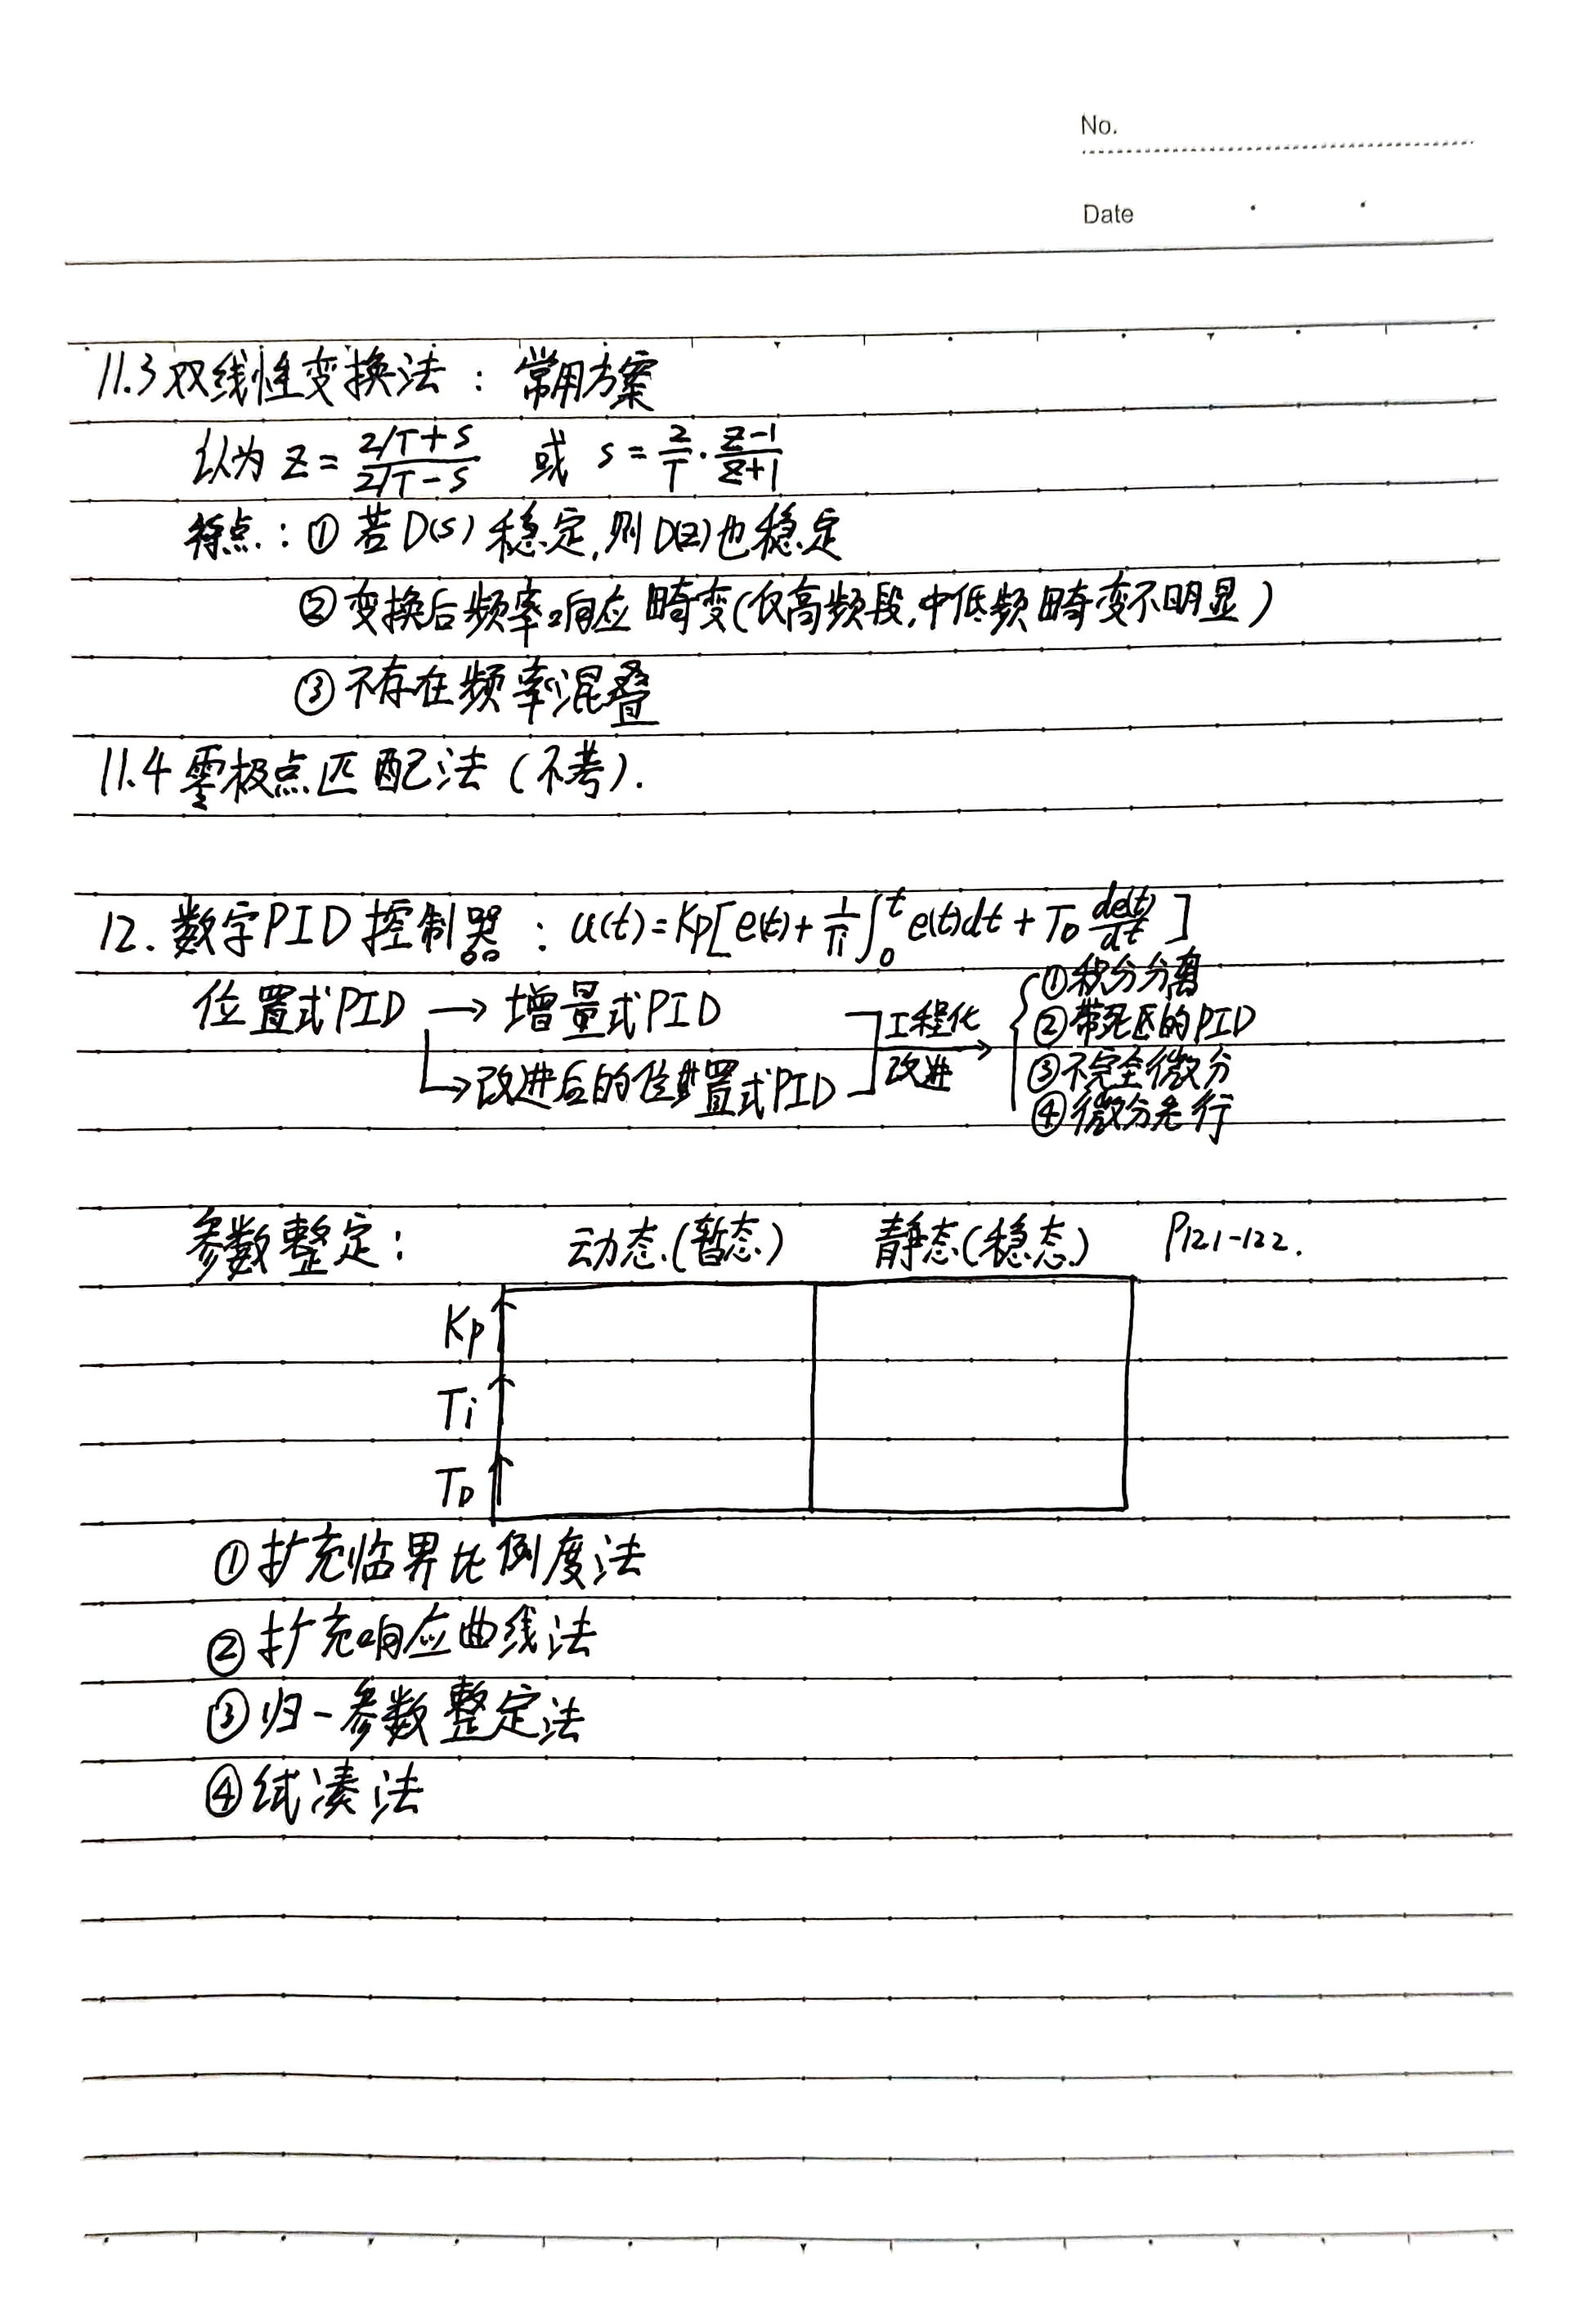 No.
Date
11.3 双线性变换法：常用方案
认为 z = (2/T+s)/(2/T-s) 或 s = 2/T · (z-1)/(z+1)
特点：① 若D(s)稳定,则D(z)也稳定
② 变换后频率响应畸变(仅高频段,中低频畸变不明显)
③ 不存在频率混叠
11.4 零极点匹配法（不考）.
12. 数字PID控制器：u(t)=Kp[e(t)+1/Ti∫₀ᵗe(t)dt+T_D de(t)/dt]
位置式PID → 增量式PID
↳改进后的位置式PID
工程化
改进
①积分分离
②带死区的PID
③不完全微分
④微分先行
参数整定： 动态(暂态) 静态(稳态) P121-122.
Kp↑
Ti↑
T_D↑
①扩充临界比例度法
②扩充响应曲线法
③归一参数整定法
④试凑法